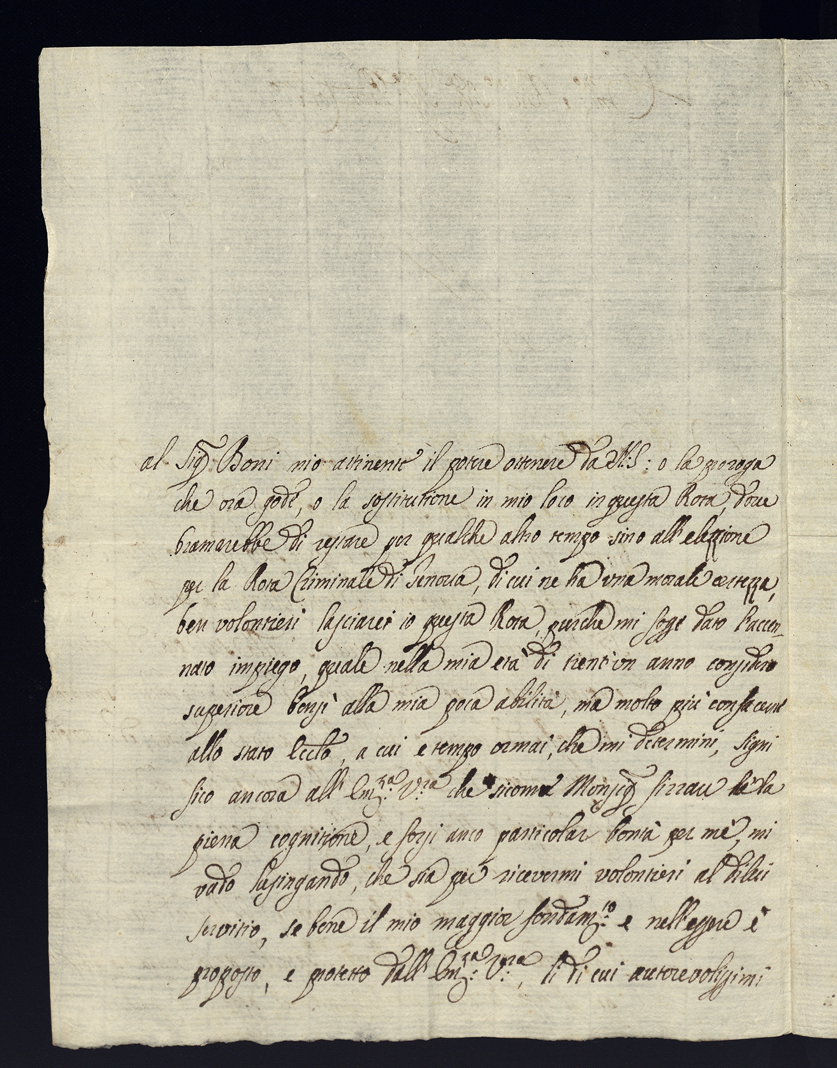 al Sig.r Boni mio attinente il poter ottenere da N.S: o la proroga
che ora gode, o la sostitutione in mio loco in questa Rota, dove
bramarebbe di restare per qualche altro tempo sino all'elezzione
per la Rota Criminale di Genova, di cui ne ha una morale certezza,
ben volontieri lasciarei io questa Rota, purche mi fosse dato l'accen-
nato impiego, quale nella mia età di trent'un anno considero
superiore bensì alla mia poca abilità, ma molto più confacente
allo stato Eccl.o, a cui è tempo ormai, che mi determini, signi
fico ancora all' Em.za V.ra che sicome Monsig.r hà la
piena cognitione, e forsi anco particolar bontà per me, mi
vado lusingando, che sia per ricevermi volontieri al di lui
servitio, se bene il mio maggior fondam.to è nell'essere è
proposto, e protetto dall' Em.za V.ra, li di cui autorevolissimi